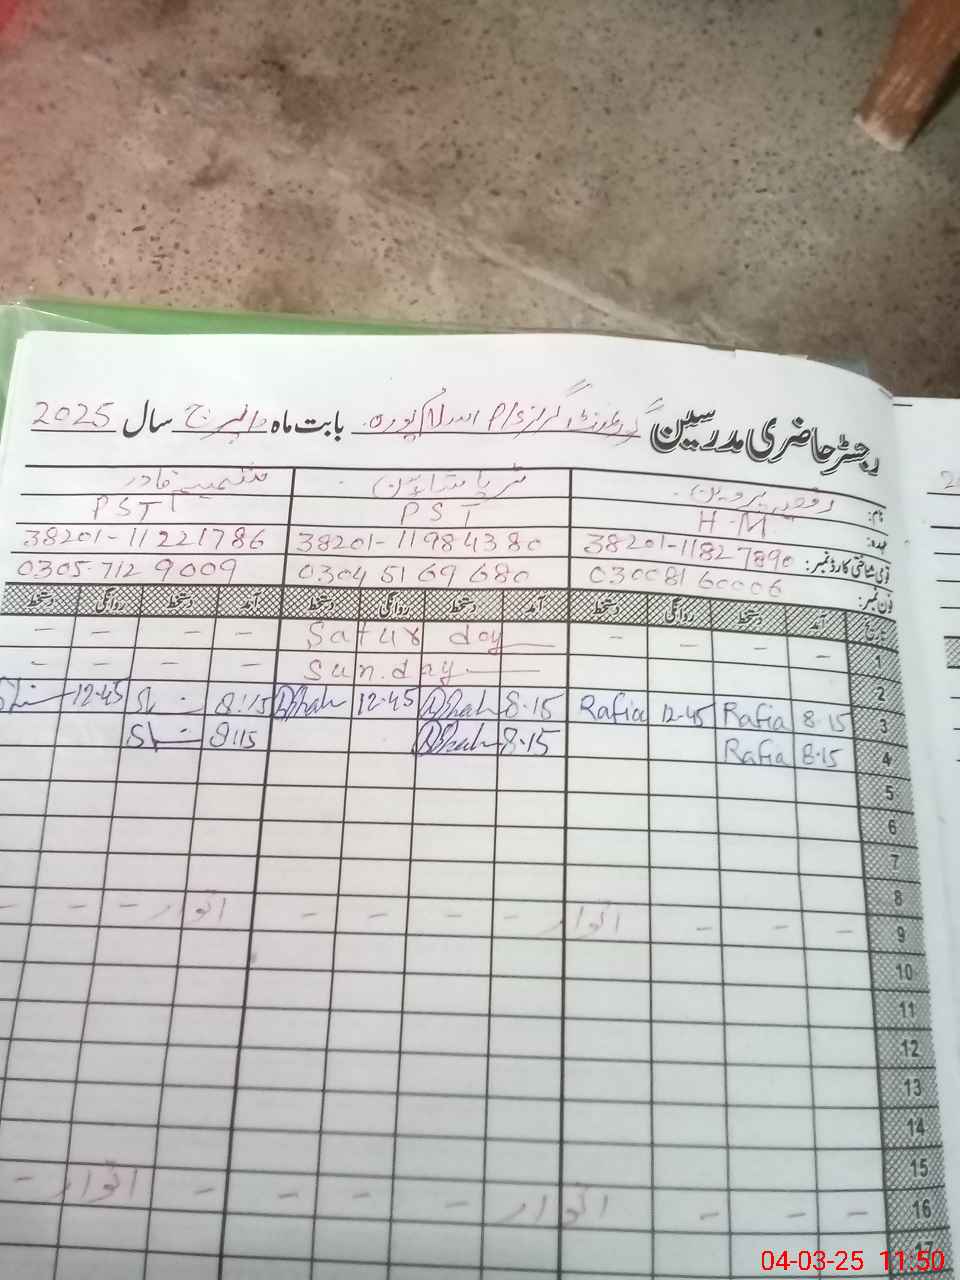 رجسٹر حاضری مدرسین گورنمنٹ گرلز P/S اسلام پورہ بابت ماہ مارچ سال 2025
نام: پروین
عہدہ: H-M PST PST
قومی شناختی کارڈ نمبر: 38201-11827890 38201-11984380 38201-11221786
فون نمبر: 03008160006 03045169680 0305-7129009
تاریخ آمد دستخط روانگی دستخط آمد دستخط روانگی دستخط آمد دستخط روانگی دستخط
1 - - - - Saturday - - - -
2 Sunday - - - -
3 8-15 Rafia 12-45 Rafia 8-15 12-45 8:15 12-45
4 8-15 Rafia 8-15 8:15
5
6
7
8
9 - - - اتوار - - - - اتوار - - -
10
11
12
13
14
15
16 - - - اتوار - - - - اتوار -
17
04-03-25 11:50